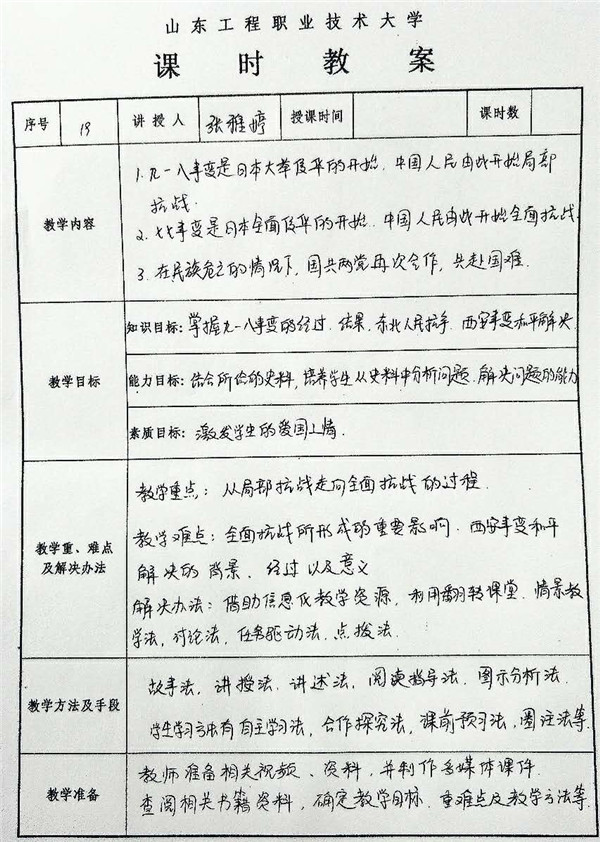 山东工程职业技术大学
课时教案
序号 19 讲授人 张雅婷 授课时间 课时数
教学内容
1. 九一八事变是日本大举侵华的开始. 中国人民由此开始局部
抗战.
2. 七七事变是日本全面侵华的开始. 中国人民由此开始全面抗战.
3. 在民族危亡的情况下, 国共两党再次合作, 共赴国难.
教学目标
知识目标: 掌握九一八事变的经过. 结果, 东北人民抗争. 西安事变和平解决.
能力目标: 结合所给的史料, 培养学生从史料中分析问题. 解决问题的能力
素质目标: 激发学生的爱国之情.
教学重、难点
及解决办法
教学重点: 从局部抗战走向全面抗战的过程.
教学难点: 全面抗战所形成的重要影响. 西安事变和平
解决的背景. 经过以及意义
解决办法: 借助信息化教学资源, 利用翻转课堂. 情景教
学法, 讨论法, 任务驱动法. 点拨法.
教学方法及手段
故事法, 讲授法. 讲述法, 阅读指导法. 图示分析法.
学生学习方法有自主学习法, 合作探究法, 课前预习法, 圈注法等.
教学准备
教师准备相关视频、资料, 并制作多媒体课件.
查阅相关书籍资料, 确定教学目标. 重难点及教学方法等.